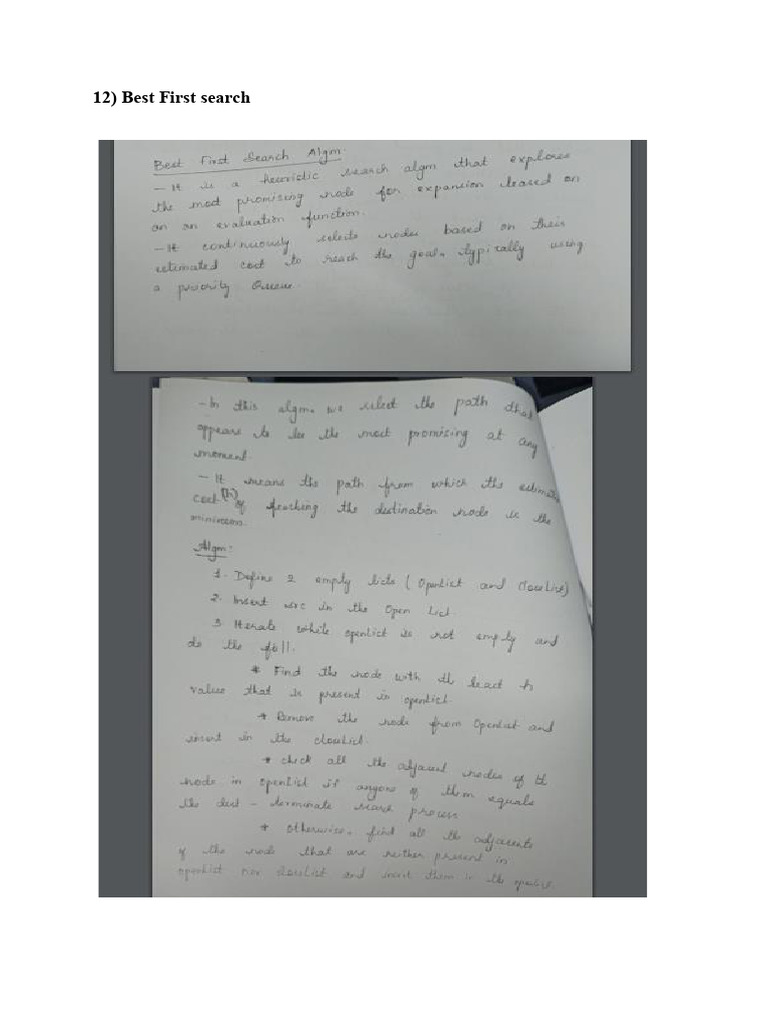 12) Best First search
Best First Search Algm.
- It is a heuristic search algm that explores
the most promising node for expansion based on
on an evaluation function.
- It continuously selects nodes based on their
estimated cost to reach the goal, typically using
a priority Queue.
- In this algm. we select the path that
appears to be the most promising at any
moment.
- It means the path from which the estimated
cost (h) of reaching the destination node is the
minimum.
Algm:
1. Define 2 empty lists ( Openlist and CloseList)
2. Insert src in the Open List
3. Iterate while openlist is not empty and
do the foll.
* Find the node with the least h
value that is present in openlist.
* Remove the node from Openlist and
insert in the closelist.
* check all the adjacent nodes of the
node in openlist if anyone of them equals
the dest - terminate search process
* Otherwise, find all the adjacents
of the node that are neither present in
openlist nor closelist and insert them in the openlist.